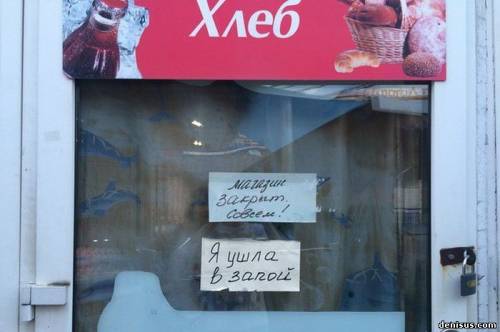 Хлеб
Магазин
Закрыт.
Совсем!
Я ушла
в запой
denisus.com